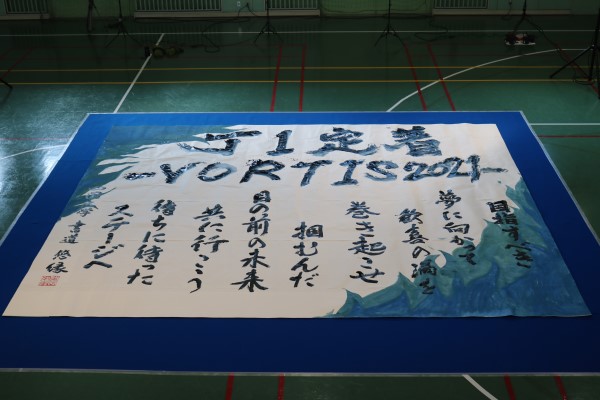 J1定着
-VORTIS2021-
目指すべき
夢に向かって
歓喜の渦を
巻き起こせ
掴むんだ
目の前の未来
共に行こう
待ちに待った
ステージへ
書道